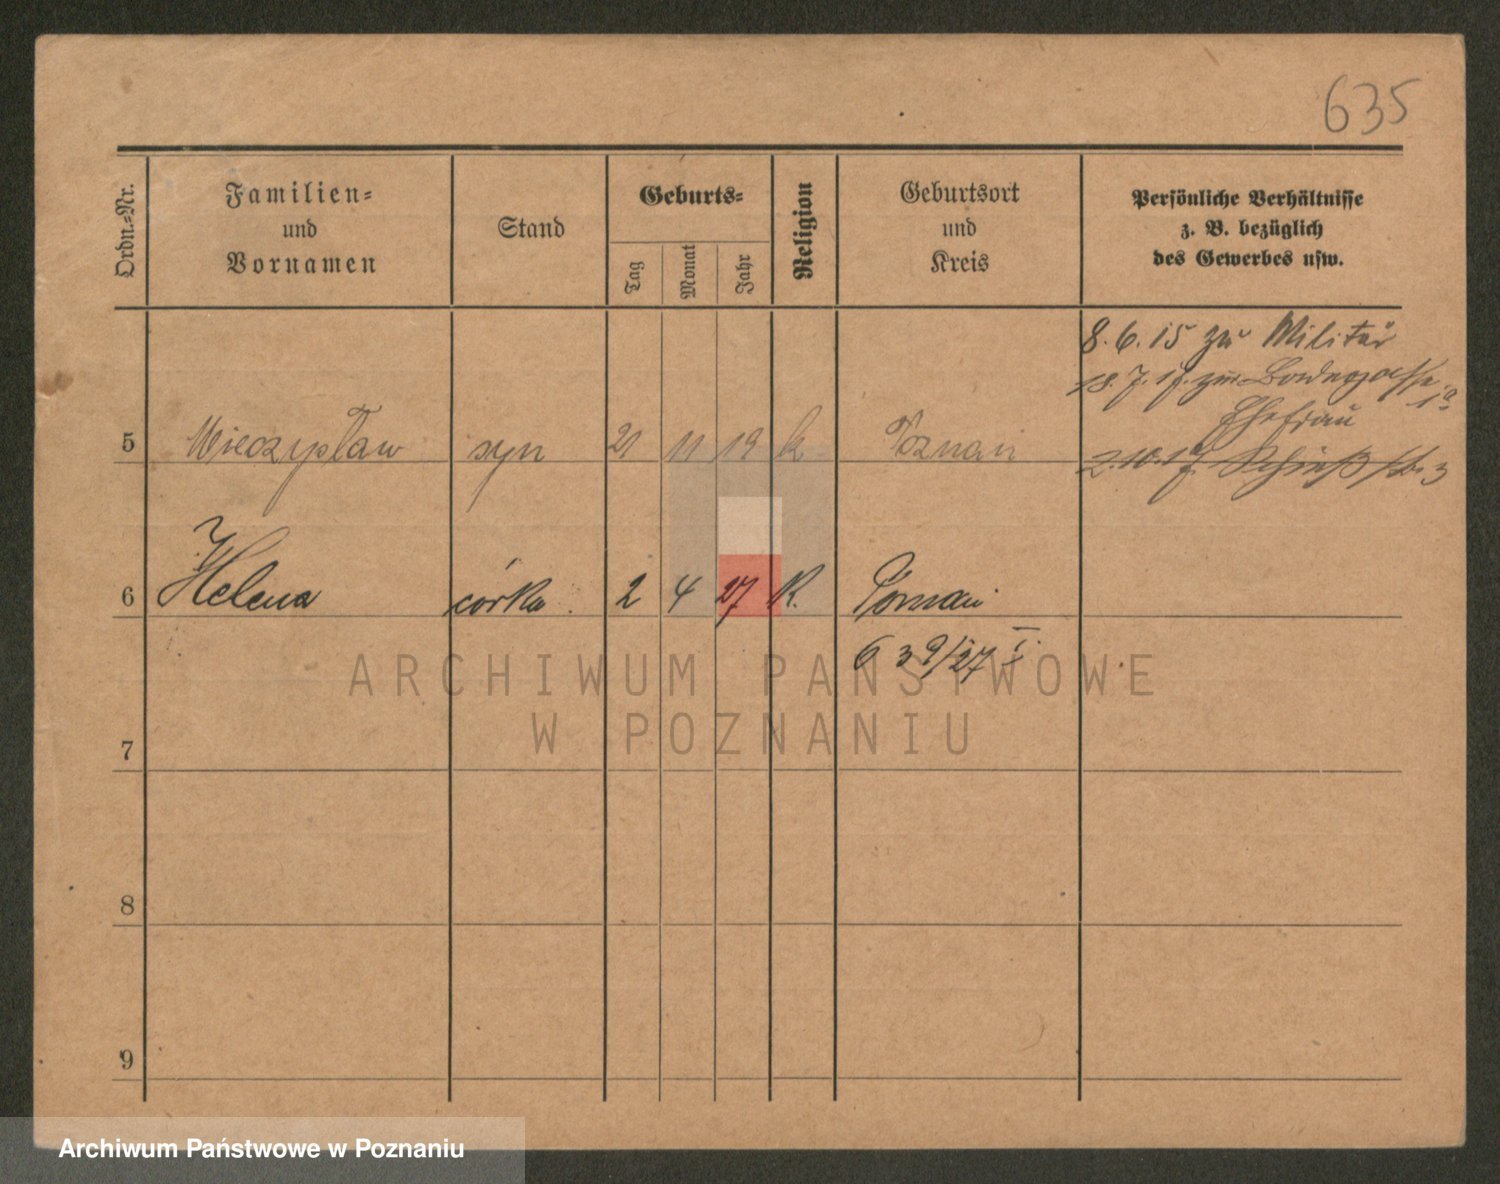 635
Ordn.-Nr.
Familien-
und
Vornamen
Stand
Geburts-
Tag
Monat
Jahr
Religion
Geburtsort
und
Kreis
Persönliche Verhältnisse
z. B. bezüglich
des Gewerbes usw.
8.6.15 zu Militär
18.7.17. zur
Ehefrau
5 Mieczysław syn 21 11 19 k Poznań
2.10.17.
6 Helena córka 2 4 27 K. Poznań
639/27 I
ARCHIWUM PAŃSTWOWE
W POZNANIU
7
8
9
Archiwum Państwowe w Poznaniu